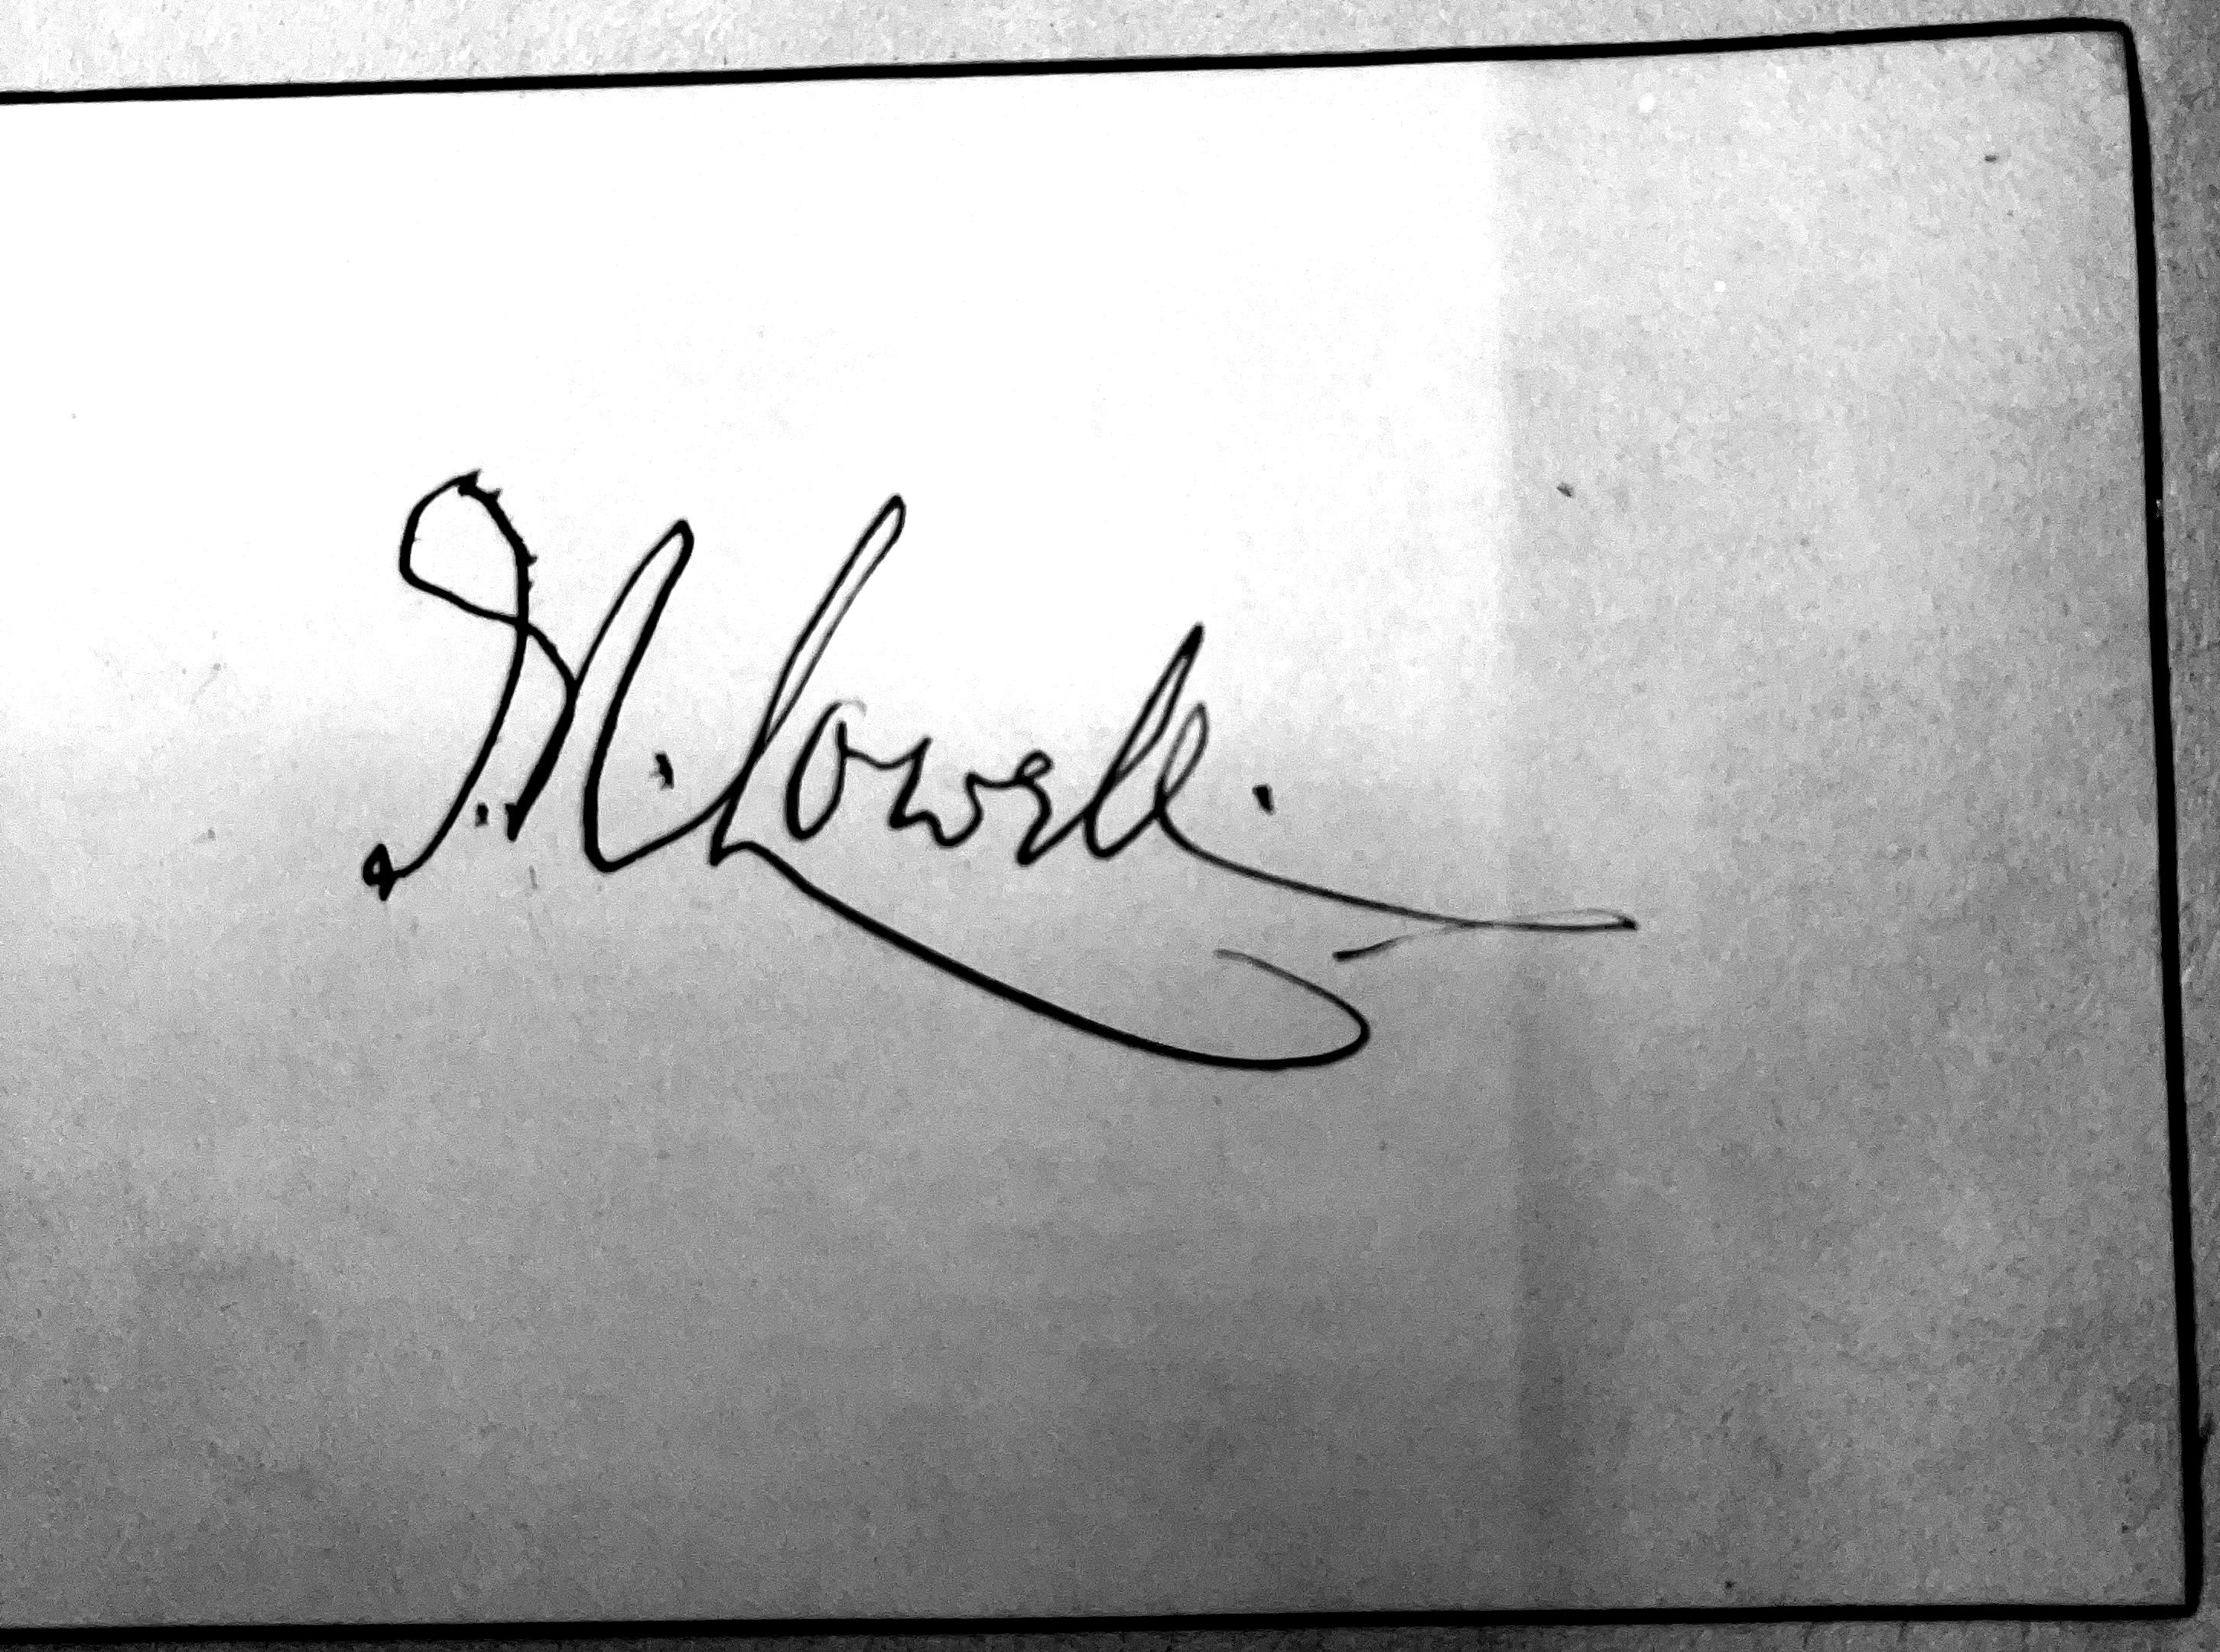 J. M. Lowell.